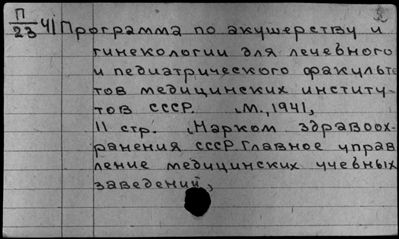 П
23 41 Программа по акушерству и
гинекологии для лечебного
и педиатрического факульте
тов медицинских институ-
тов СССР. М., 1941,
11 стр. (Нарком здравоох-
ранения СССР. Главное управ
ление медицинских учебных
заведений)